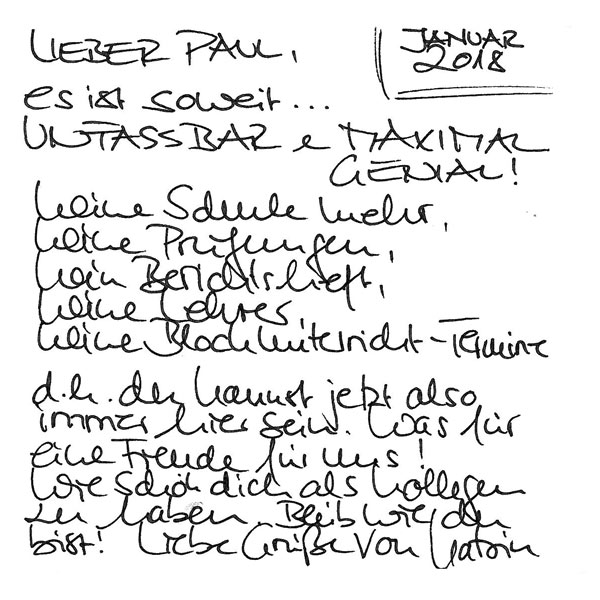 LIEBER PAUL,
JANUAR
2018
es ist soweit...
UNFASSBAR & MAXIMAL
GENIAL!
keine Schule mehr,
keine Prüfungen,
kein Berichtsheft,
keine Lehrer
keine Blockunterricht-Termine
d.h. du kannst jetzt also
immer hier sein. Was für
eine Freude für uns!
Wie schön dich als Kollegen
zu haben. Bleib wie du
bist! Liebe Grüße von Katrin